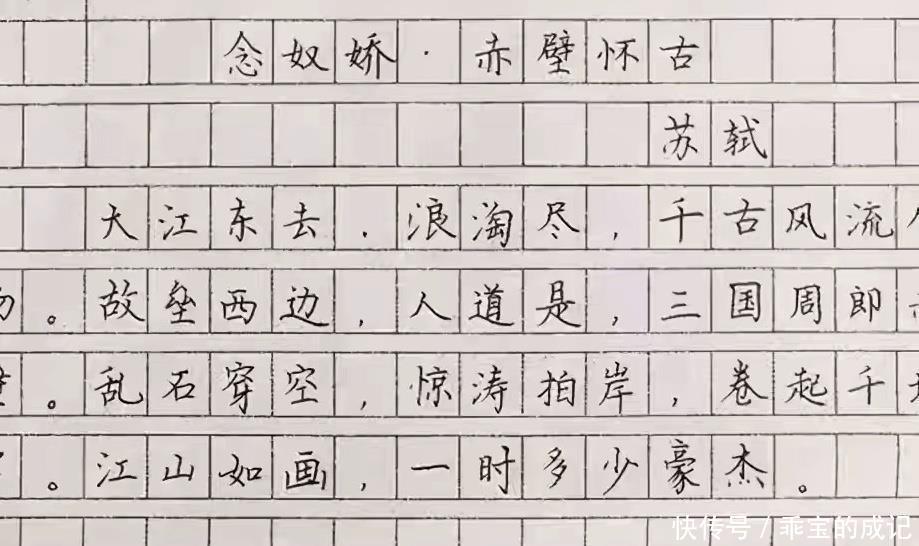 念奴娇·赤壁怀古
苏轼
大江东去，浪淘尽，千古风流
。故垒西边，人道是，三国周郎
。乱石穿空，惊涛拍岸，卷起千
。江山如画，一时多少豪杰。
快传号/乖宝的成记